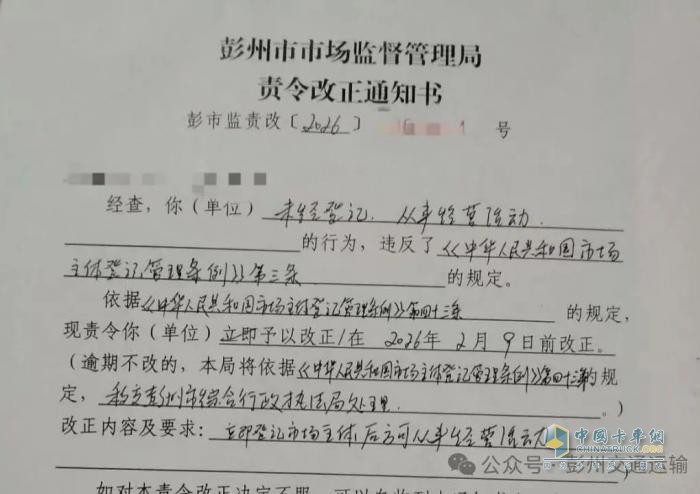 彭州市市场监督管理局
责令改正通知书
彭市监责改〔2026〕 号
经查，你（单位）未经登记、从事经营活动
的行为，违反了《中华人民共和国市场
主体登记管理条例》第三条 的规定。
依据《中华人民共和国市场主体登记管理条例》第四十三条 的规定，
现责令你（单位）立即予以改正/在 2026年 2月 9日前改正。
（逾期不改的，本局将依据《中华人民共和国市场主体登记管理条例》第四十三条的规
定，移交彭州市综合行政执法局处理 。）
改正内容及要求：立即登记市场主体后方可从事经营活动
中国卡车网
公众号·彭州交通运输
如对本责令改正决定不服，可以